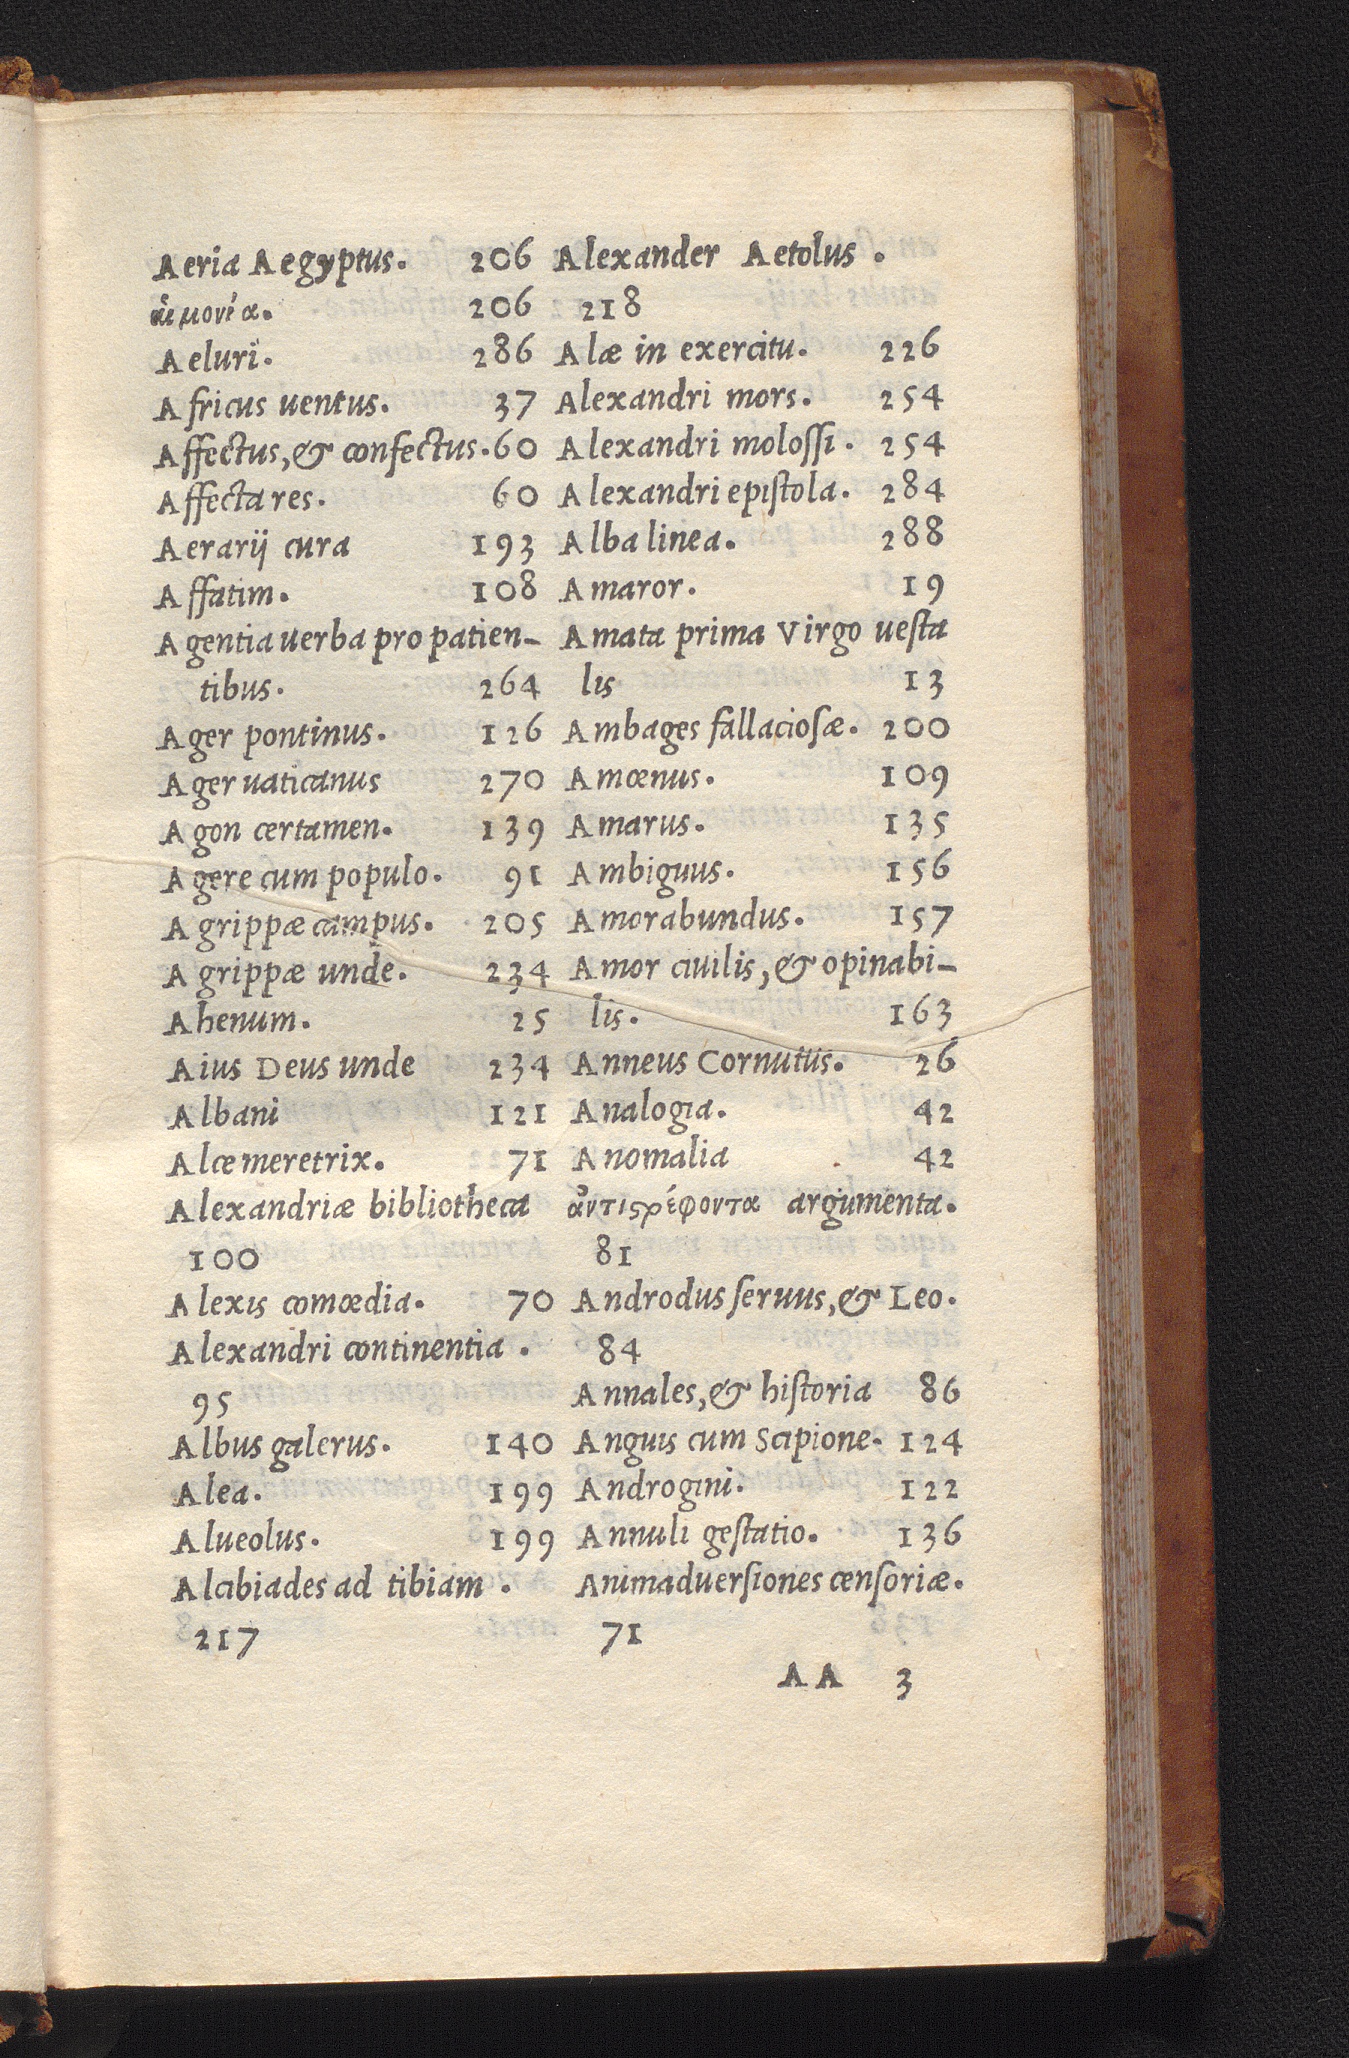 Aeria Aegyptus. 206
206
Aeluri. 286
Africus uentus. 37
Affectus, & confectus. 60
Affecta res. 60
Aerarij cura 193
Affatim. 108
Agentia uerba pro patien-
tibus. 264
Ager pontinus. 126
Ager uaticanus 270
Agon certamen. 139
Agere cum populo. 91
Agrippæ campus. 205
Agrippæ unde. 234
Ahenum. 25
Aius Deus unde 234
Albani 121
Alcæ meretrix. 71
Alexandriæ bibliotheca
100
Alexis comœdia. 70
Alexandri continentia .
95
Albus galerus. 140
Alea. 199
Alueolus. 199
Alcibiades ad tibiam .
217
Alexander Aetolus .
218
Alæ in exercitu. 226
Alexandri mors. 254
Alexandri molossi. 254
Alexandri epistola. 284
Alba linea. 288
Amaror. 19
Amata prima Virgo uesta
lis 13
Ambages fallaciosæ. 200
Amœnus. 109
Amarus. 135
Ambiguus. 156
Amorabundus. 157
Amor ciuilis, & opinabi-
lis. 163
Anneus Cornutus. 26
Analogia. 42
Anomalia 42
ἀντιϛρέφοντα argumenta.
81
Androdus seruus, & Leo.
84
Annales, & historia 86
Anguis cum Scipione. 124
Androgini. 122
Annuli gestatio. 136
Animaduersiones censoriæ.
71
AA 3